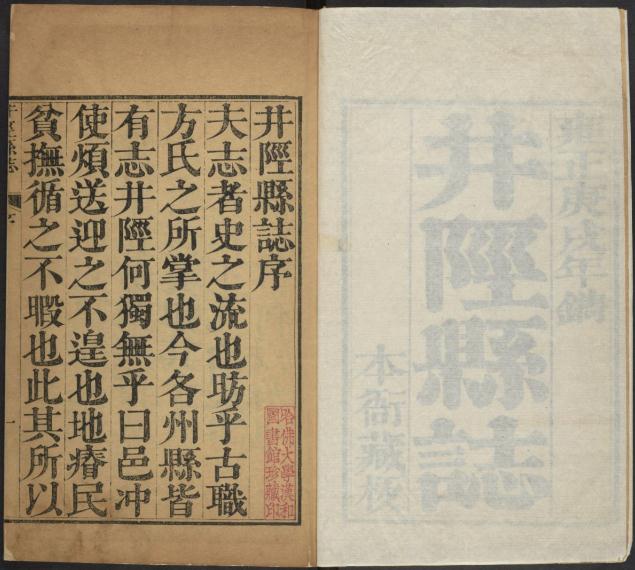 雍正庚戌年鐫
井陘縣誌
本衙藏板
井陘縣誌序
夫志者史之流也昉乎古職
方氏之所掌也今各州縣皆
有志井陘何獨無乎曰邑冲
使煩送迎之不遑也地瘠民
貧撫循之不暇也此其所以
哈佛大學漢和
圖書館珍藏印
序
一